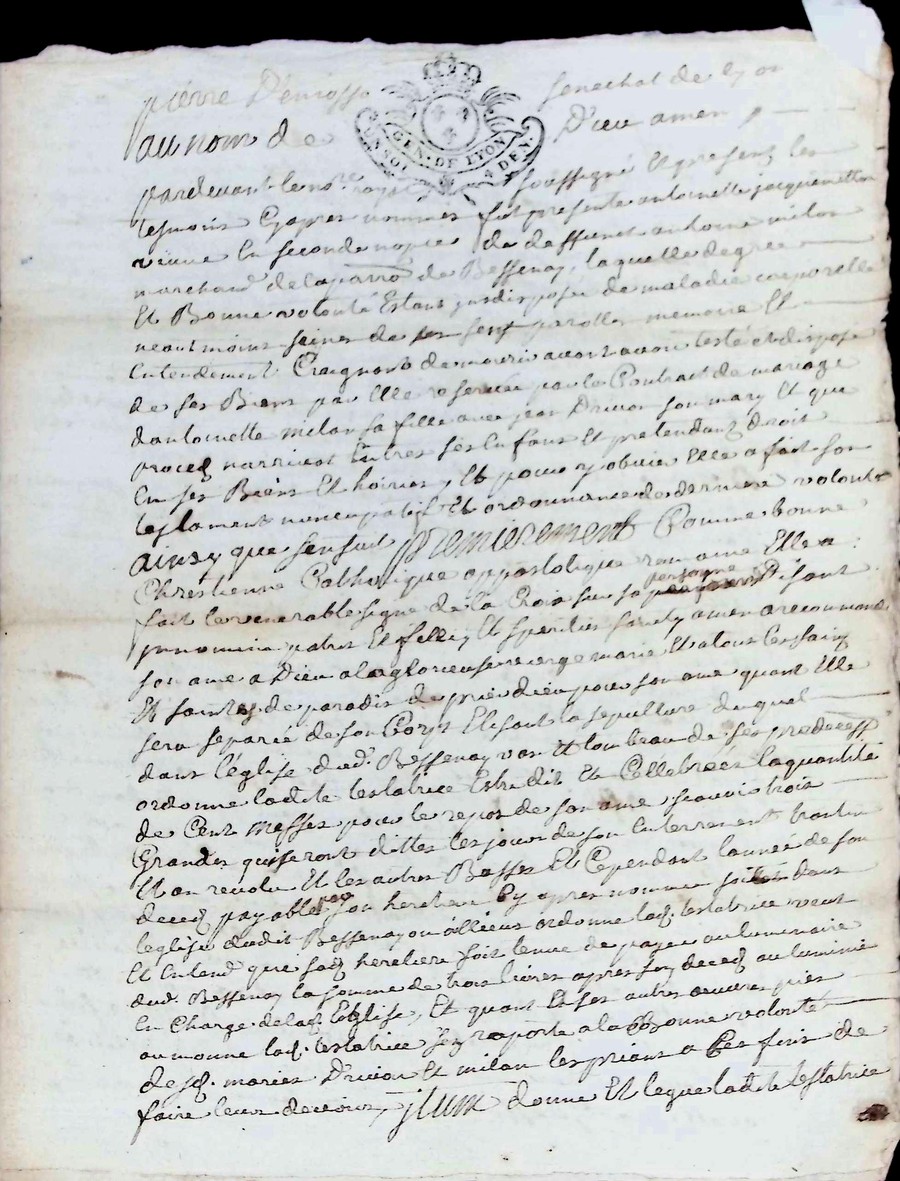 pierre Denosse senechal de lyon
au nom de Dieu amen
GEN. DE LYON
UN SOL DEN.
pardevant le no.re royal soussigné Et presents les
tesmoins Cyapres nommes fut presente antoinette jacquemetton
veuve En seconde nopce de deffunct antoine milan
marchand de la parro de Bessenay, laquelle de gree
Et Bonne volonté Estant indisposée de maladie corporelle
neantmoins saine de ses sens parolle memoire Et
Entendement Craignant de mourir avant avoir testé et disposé
de ses Biens par Elle reservée par le Contract de mariage
dantoinette milan sa fille avec jean Drivon son mary Et que
proces narrivat Entres ses Enfans Et pretendantz droit
En ses Biens Et hoirie, Et pour y obvier Elle a fait son
testament nuncupatif Et ordonnance de derniere volonté
ainsy que sensuit premierement Comme bonne
Chrestienne Catholique appostolique romaine Elle a
fait le venerable signe de la Croix sur sa personne Disant
in nomine patris Et filli, Et Speritus Santy amen a recommandé
son ame a Dieu a la glorieuse vierge marie Et a tous les sainz
Et saintes de paradis de prier dieu pour son ame quant Elle
sera separée de son Corps Elisant sa sepulture duquel
dans l'église dud. Bessenay vas Et tombeau de ses predecess
ordonne lad.te testatrice Estre dit Et Cellebrées la quantité
de Cent Messes pour le repos de son ame scavoir trois
Grandes qui seront dittes les jours de son Enterrement
Et an revolu Et les autres Basses Et Cependant lannée de son
deced payable par son heretiere Cy apres nommée soit dans
leglise dudit Bessenay ou ailleurs ordonne lad. testatrice veut
Et Entend que sad heretiere soit tenue de payer au luminaire
dud. Bessenay la somme de trois livres apres son deced au luminié
En Charge de lad. Eglise, Et quant Et ses autres œuvres pies
aumonne lad. testatrice s'en raporte a la Bonne volonté
de sd. maries Drivon Et milan les priant a Ces fins de
faire leur devoir, Itum donne Et legue lad.te testatrice